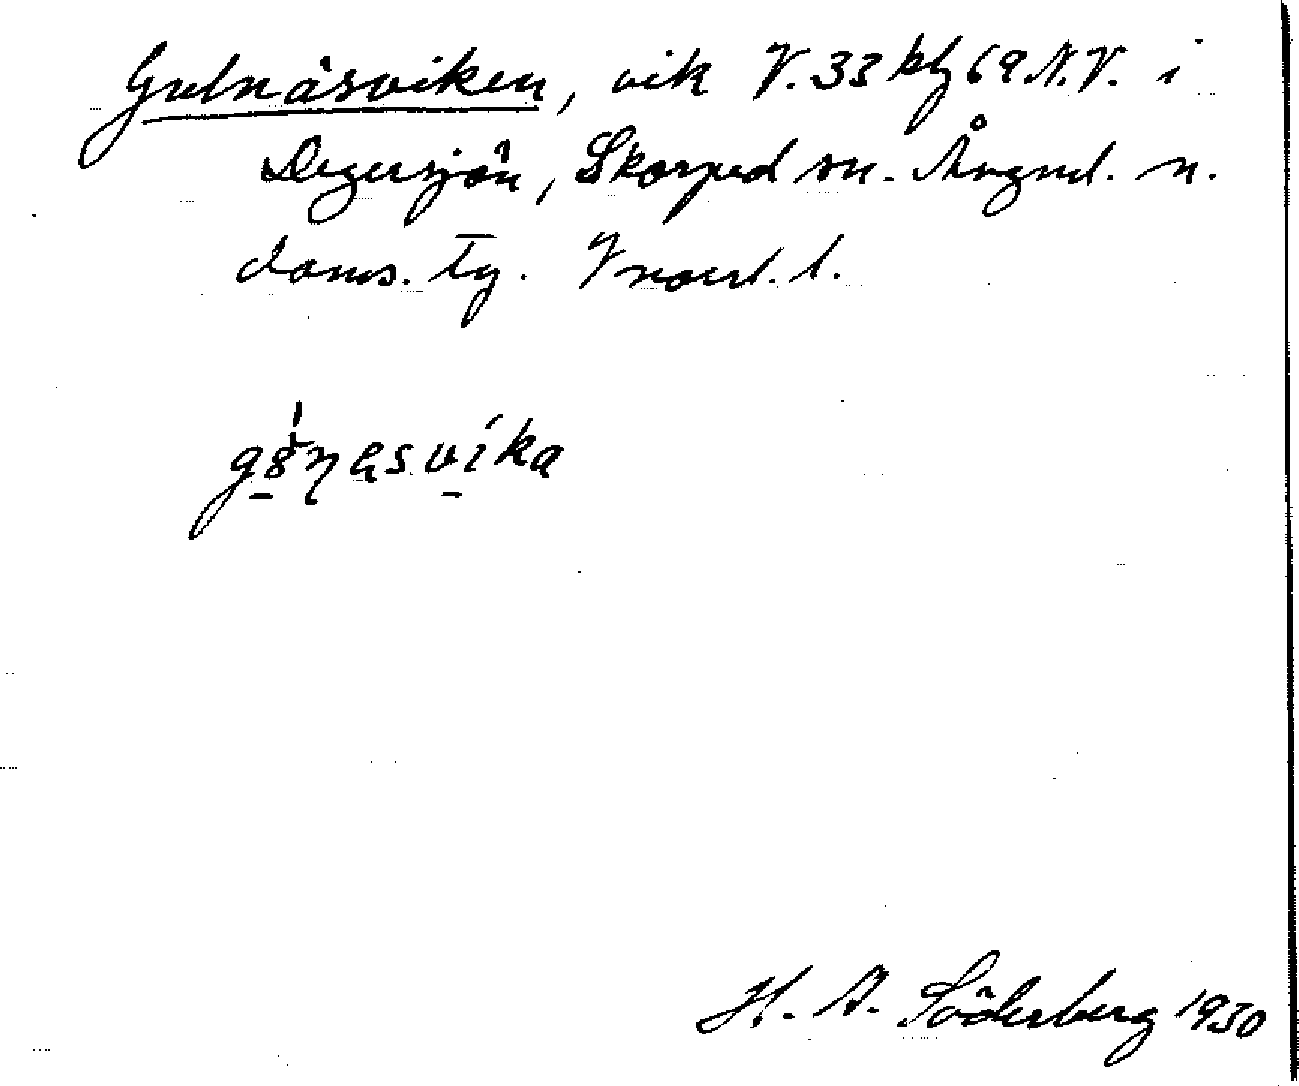 Gulnäsviken, vik V. 33 bl 69 N.V. i
Degersjön, Skorped sn. Ångml. n.
doms. tg. Vnorrl. l.
H. A. Söderberg 1930